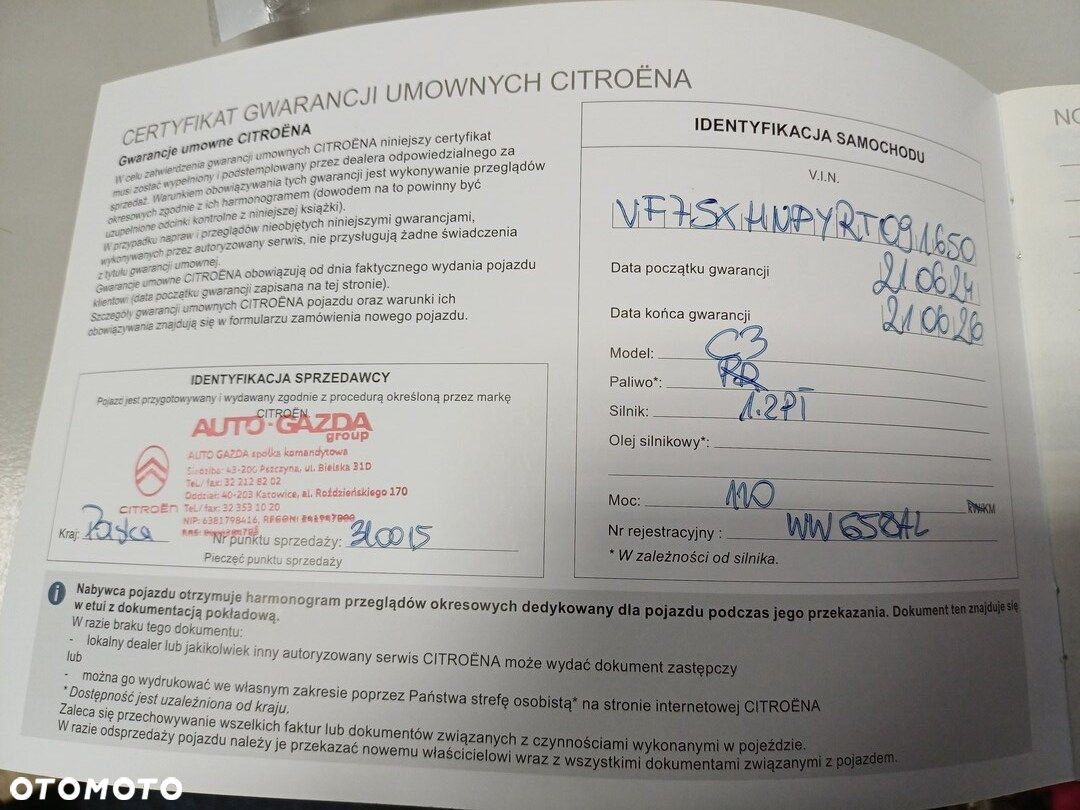 CERTYFIKAT GWARANCJI UMOWNYCH CITROËNA
Gwarancje umowne CITROËNA
W celu zatwierdzenia gwarancji umownych CITROËNA niniejszy certyfikat
musi zostać wypełniony i podstemplowany przez dealera odpowiedzialnego za
sprzedaż. Warunkiem obowiązywania tych gwarancji jest wykonywanie przeglądów
okresowych zgodnie z ich harmonogramem (dowodem na to powinny być
uzupełnione odcinki kontrolne z niniejszej książki).
W przypadku napraw i przeglądów nieobjętych niniejszymi gwarancjami,
wykonywanych przez autoryzowany serwis, nie przysługują żadne świadczenia
z tytułu gwarancji umownej.
Gwarancje umowne CITROËNA obowiązują od dnia faktycznego wydania pojazdu
klientowi (data początku gwarancji zapisana na tej stronie).
Szczegóły gwarancji umownych CITROËNA pojazdu oraz warunki ich
obowiązywania znajdują się w formularzu zamówienia nowego pojazdu.
IDENTYFIKACJA SPRZEDAWCY
Pojazd jest przygotowywany i wydawany zgodnie z procedurą określoną przez markę
CITROËN
AUTO-GAZDA
group
AUTO GAZDA spółka komandytowa
Siedziba: 43-200 Pszczyna, ul. Bielska 31D
Tel./ fax: 32 212 82 02
Oddział: 40-203 Katowice, al. Roździeńskiego 170
CITROËN Tel./ fax: 32 353 10 20
NIP: 6381798416, REGON:
Kraj: Polska Nr punktu sprzedaży: 310015
Pieczęć punktu sprzedaży
IDENTYFIKACJA SAMOCHODU
V.I.N.
VF7SXHNPYRT091650
Data początku gwarancji 210624
Data końca gwarancji 210626
Model: C3
Paliwo*:
Silnik: 1.2PT
Olej silnikowy*:
Moc: 110 KW/KM
Nr rejestracyjny : WW658AL
* W zależności od silnika.
Nabywca pojazdu otrzymuje harmonogram przeglądów okresowych dedykowany dla pojazdu podczas jego przekazania. Dokument ten znajduje się
w etui z dokumentacją pokładową.
W razie braku tego dokumentu:
- lokalny dealer lub jakikolwiek inny autoryzowany serwis CITROËNA może wydać dokument zastępczy
lub
- można go wydrukować we własnym zakresie poprzez Państwa strefę osobistą* na stronie internetowej CITROËNA
* Dostępność jest uzależniona od kraju.
Zaleca się przechowywanie wszelkich faktur lub dokumentów związanych z czynnościami wykonanymi w pojeździe.
W razie odsprzedaży pojazdu należy je przekazać nowemu właścicielowi wraz z wszystkimi dokumentami związanymi z pojazdem.
NO
OTOMOTO